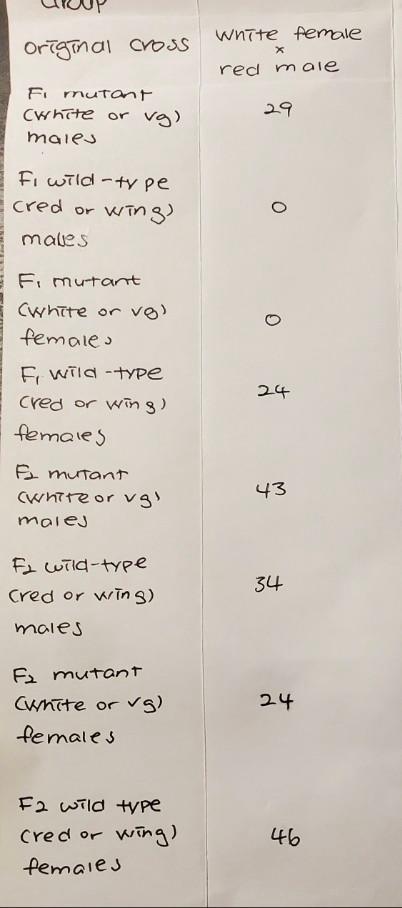 Group
original cross white female
x
red male
F1 mutant
(white or vg) 29
males
F1 wild-type
(red or wing) 0
males
F1 mutant
(white or vg) 0
females
F1 wild-type
(red or wing) 24
females
F2 mutant
(white or vg) 43
males
F2 wild-type
(red or wing) 34
males
F2 mutant
(white or vg) 24
females
F2 wild type
(red or wing) 46
females